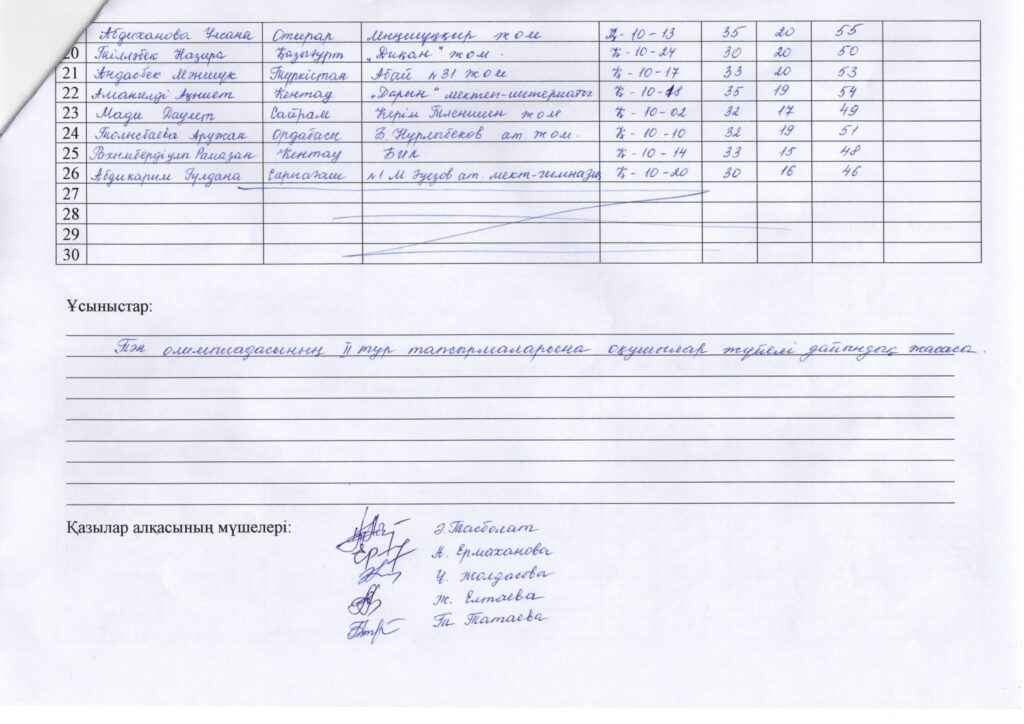 Абдиханова Ұлсана Отырар жом Қ-10-13 35 20 55
20 Назира Қазығурт „Диқан“ жом. Қ-10-24 30 20 50
21 Андасбек Мәншук Түркістан Абай №31 жом Қ-10-17 33 20 53
22 Амангелді Ақниет Кентау „Дарын“ мектеп-интернаты Қ-10-18 35 19 54
23 Мади Даулет Сайрам Керім Тленшин жом Қ-10-02 32 17 49
24 Аружан Ордабасы Б. Нұрлыбеков ат. жом. Қ-10-10 32 19 51
25 Рамазан Кентау БИЛ Қ-10-14 33 15 48
26 Абдикарим Гулдана Сарыағаш №1 М Әуезов ат. мект-гимназия Қ-10-20 30 16 46
27
28
29
30
Ұсыныстар:
Пән олимпиадасының II тур тапсырмаларына оқушылар жүйелі дайындық жасасы.
Қазылар алқасының мүшелері:
Ә. Тасболат
А. Ермаханова
Ұ. Жолдасова
Ж. Елтаева
Гү. Татаева